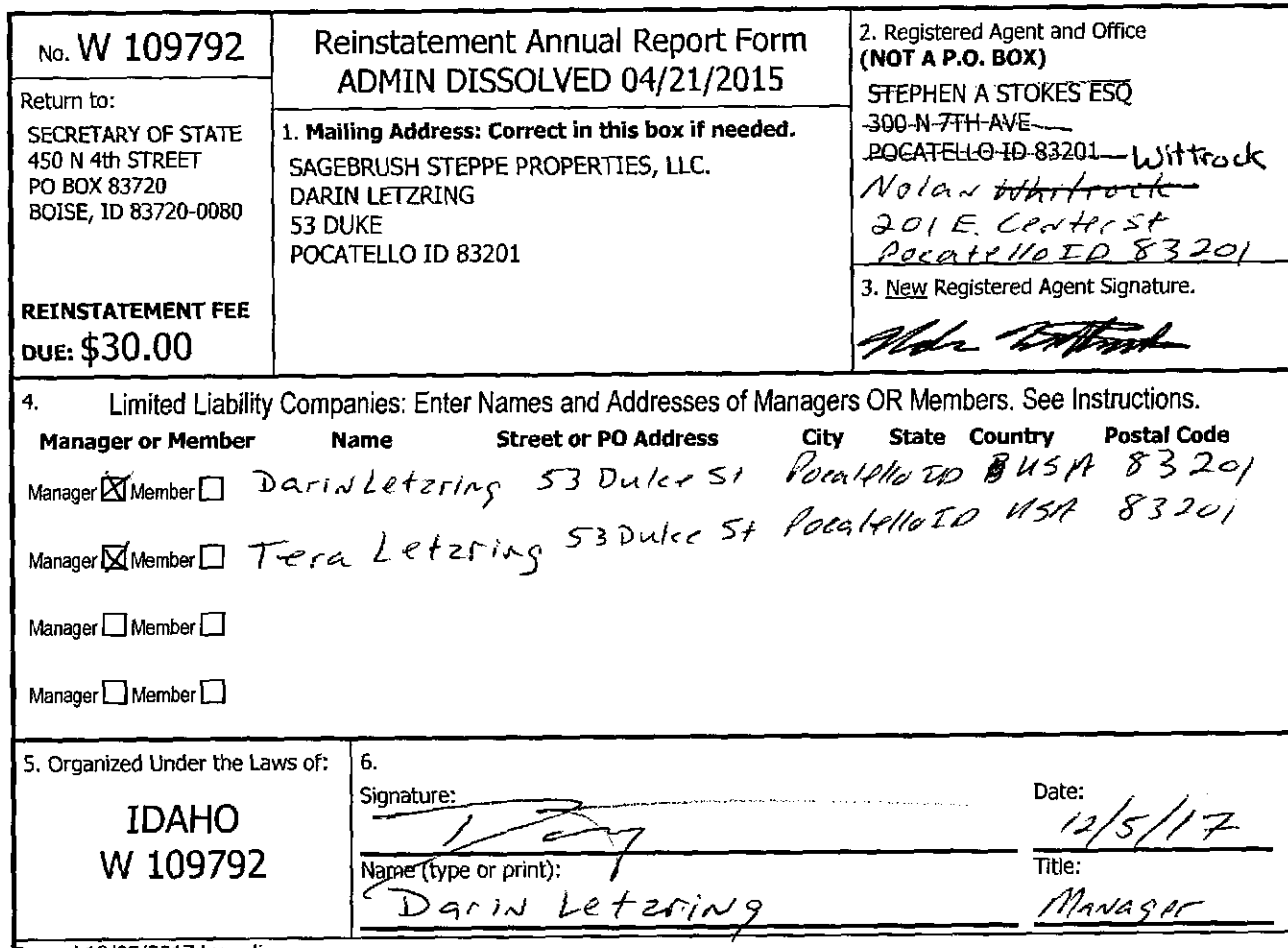 No. W 109792
Return to:
SECRETARY OF STATE
450 N 4th STREET
PO BOX 83720
BOISE, ID 83720-0080
REINSTATEMENT FEE
DUE: $30.00
Reinstatement Annual Report Form
ADMIN DISSOLVED 04/21/2015
1. Mailing Address: Correct in this box if needed.
SAGEBRUSH STEPPE PROPERTIES, LLC.
DARIN LETZRING
53 DUKE
POCATELLO ID 83201
2. Registered Agent and Office
(NOT A P.O. BOX)
STEPHEN A STOKES ESQ
300 N 7TH AVE
POCATELLO ID 83201 Wittrock
Nolan Whitrock
201 E. Center St
Pocatello ID 83201
3. New Registered Agent Signature.
4. Limited Liability Companies: Enter Names and Addresses of Managers OR Members. See Instructions.
Manager or Member Name Street or PO Address City State Country Postal Code
Manager Member Darin Letzring 53 Duke St Pocatello ID USA 83201
Manager Member Tera Letzring 53 Duke St Pocatello ID USA 83201
Manager Member
Manager Member
5. Organized Under the Laws of:
IDAHO
W 109792
6.
Signature:
Date:
12/5/17
Name (type or print):
Darin Letzring
Title:
Manager